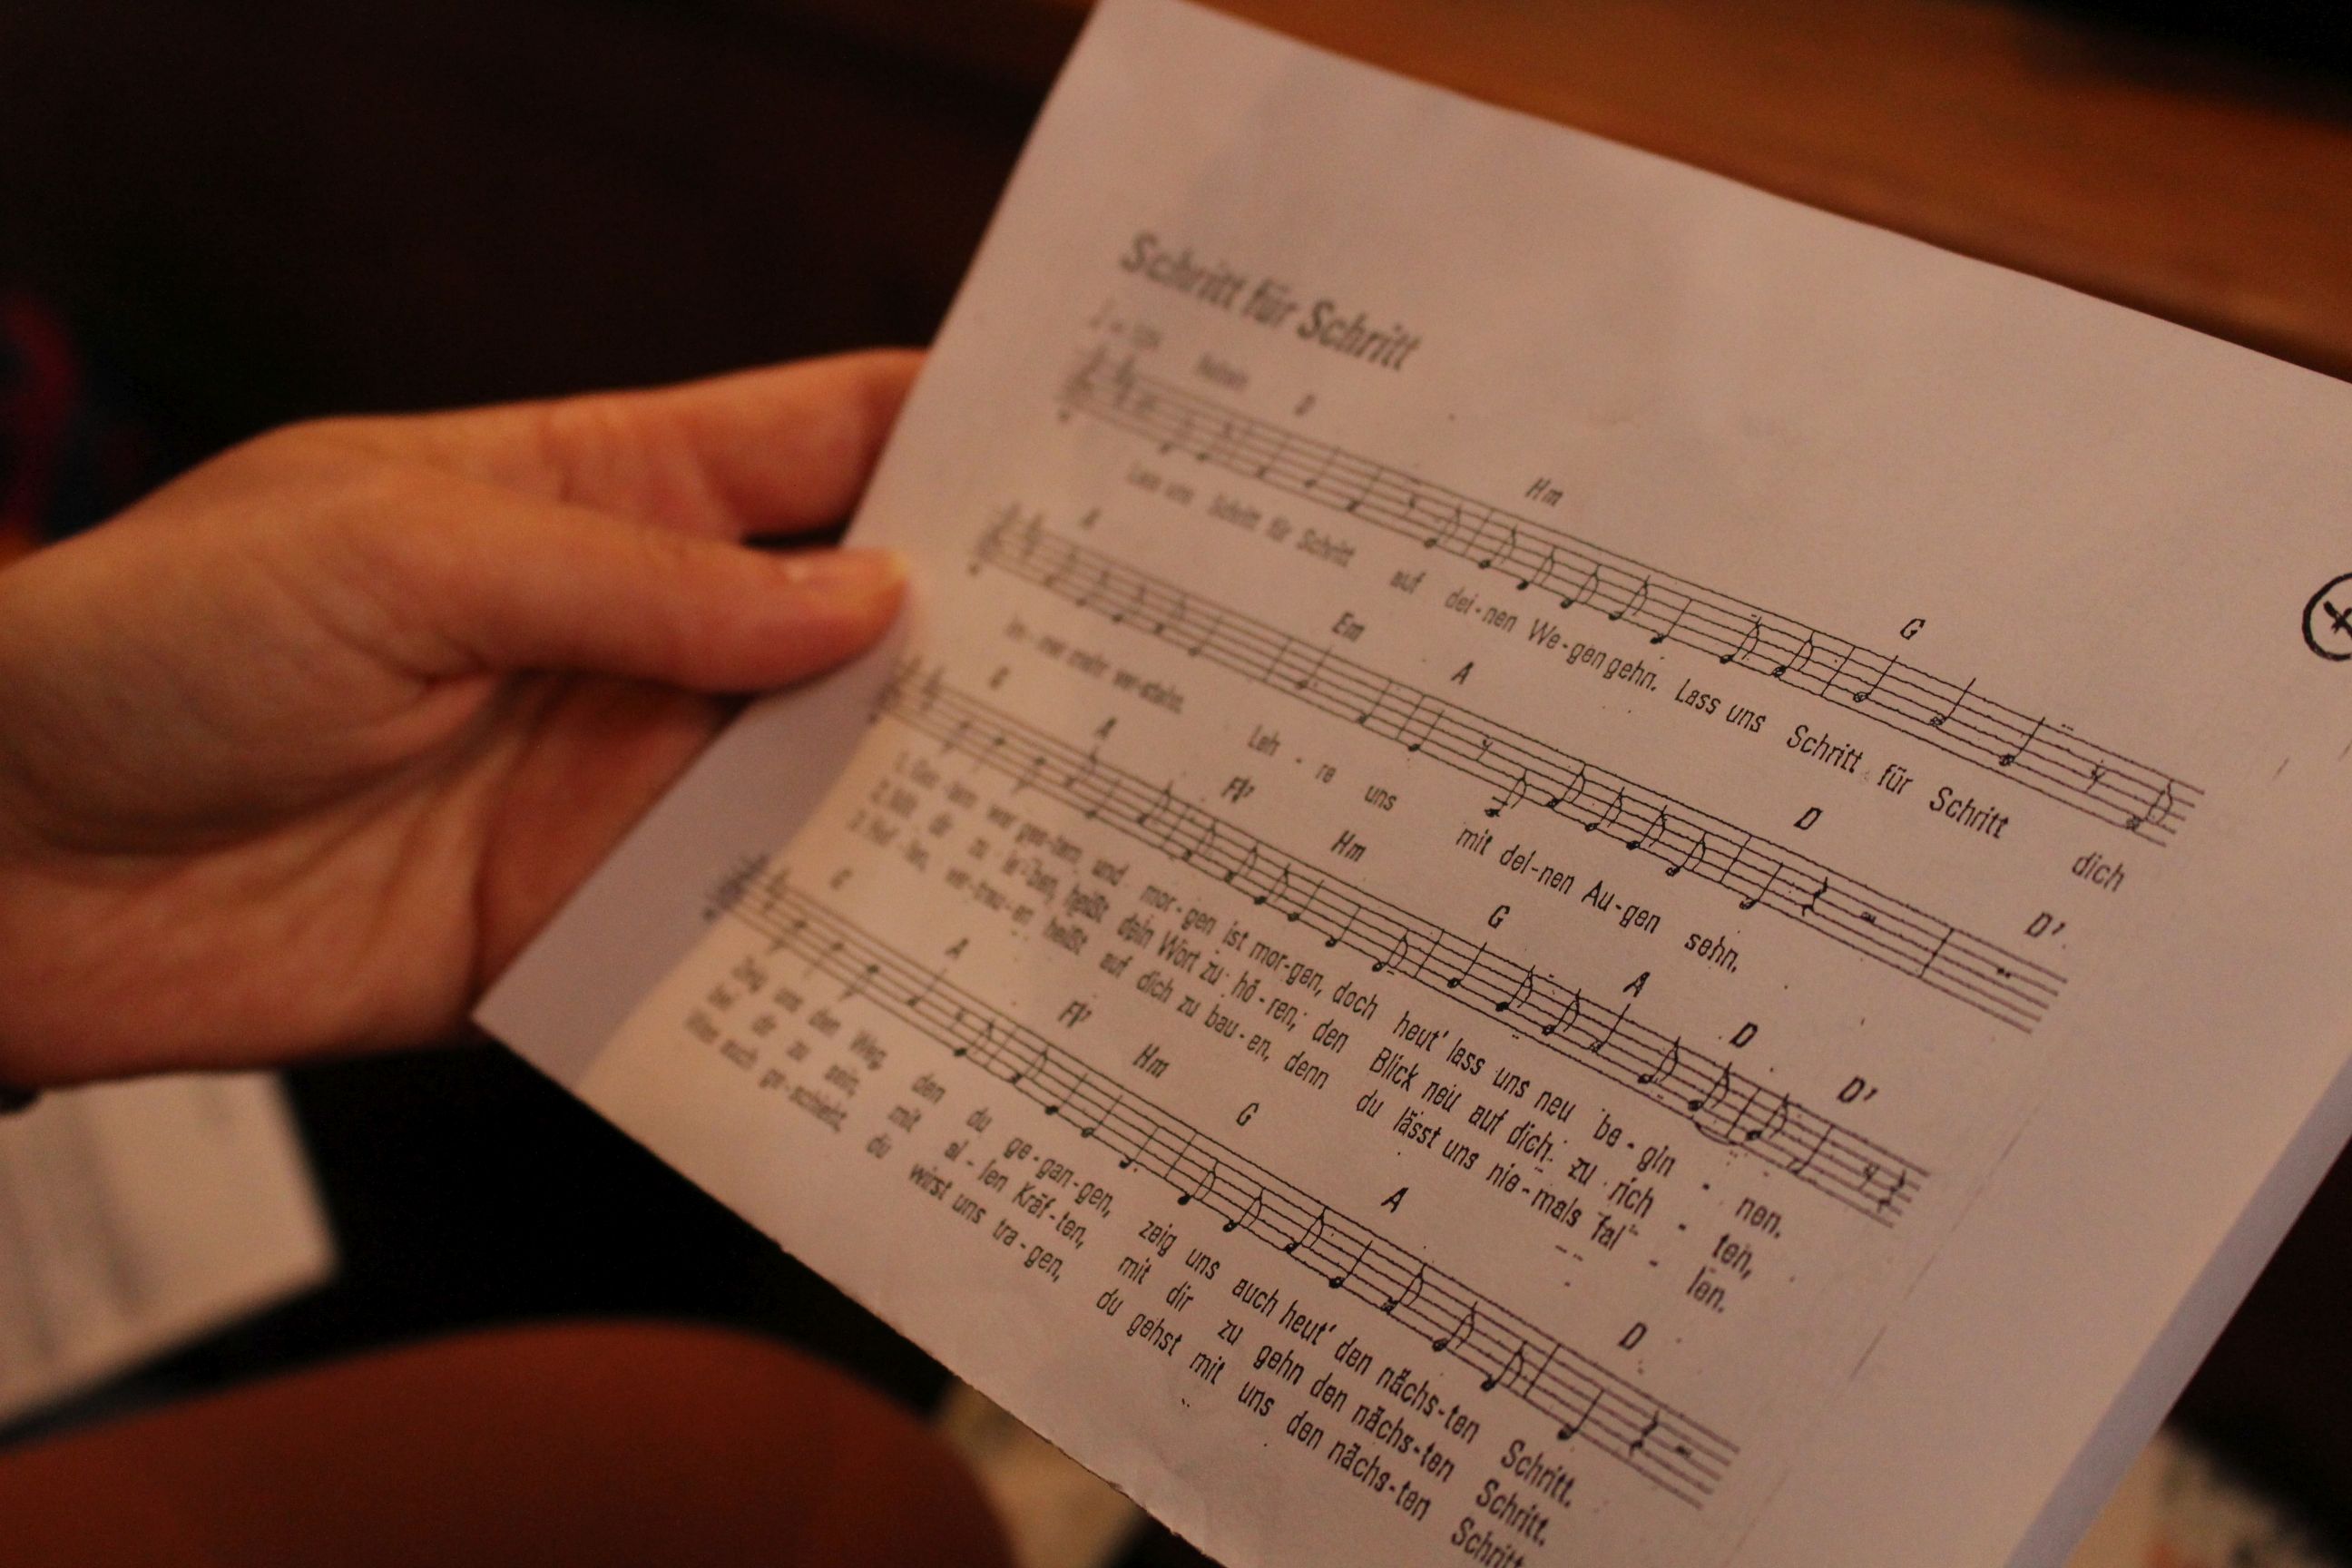 Schritt für Schritt
D Hm G
Lass uns Schritt für Schritt auf dei-nen We-gen gehn. Lass uns Schritt für Schritt dich
A Em A D D⁷
im-mer mehr ver-stehn. Leh - re uns mit dei-nen Au-gen sehn.
G A F#⁷ Hm G A D D⁷
1. Ges-tern war ges-tern, und mor-gen ist mor-gen, doch heut' lass uns neu be-gin - nen.
2. Mit dir zu le-ben, heißt dein Wort zu hö-ren, den Blick neu auf dich zu rich - ten,
ver-trau-en heißt auf dich zu bau-en, denn du lässt uns nie-mals fal - len.
G A F#⁷ Hm G A D
Zeig uns den Weg, den du ge-gan-gen, zeig uns auch heut' den nächs-ten Schritt.
bei dir zu sein, mit al-len Kräf-ten, mit dir zu gehn den nächs-ten Schritt.
Was auch ge-schieht, du wirst uns tra-gen, du gehst mit uns den nächs-ten Schritt.